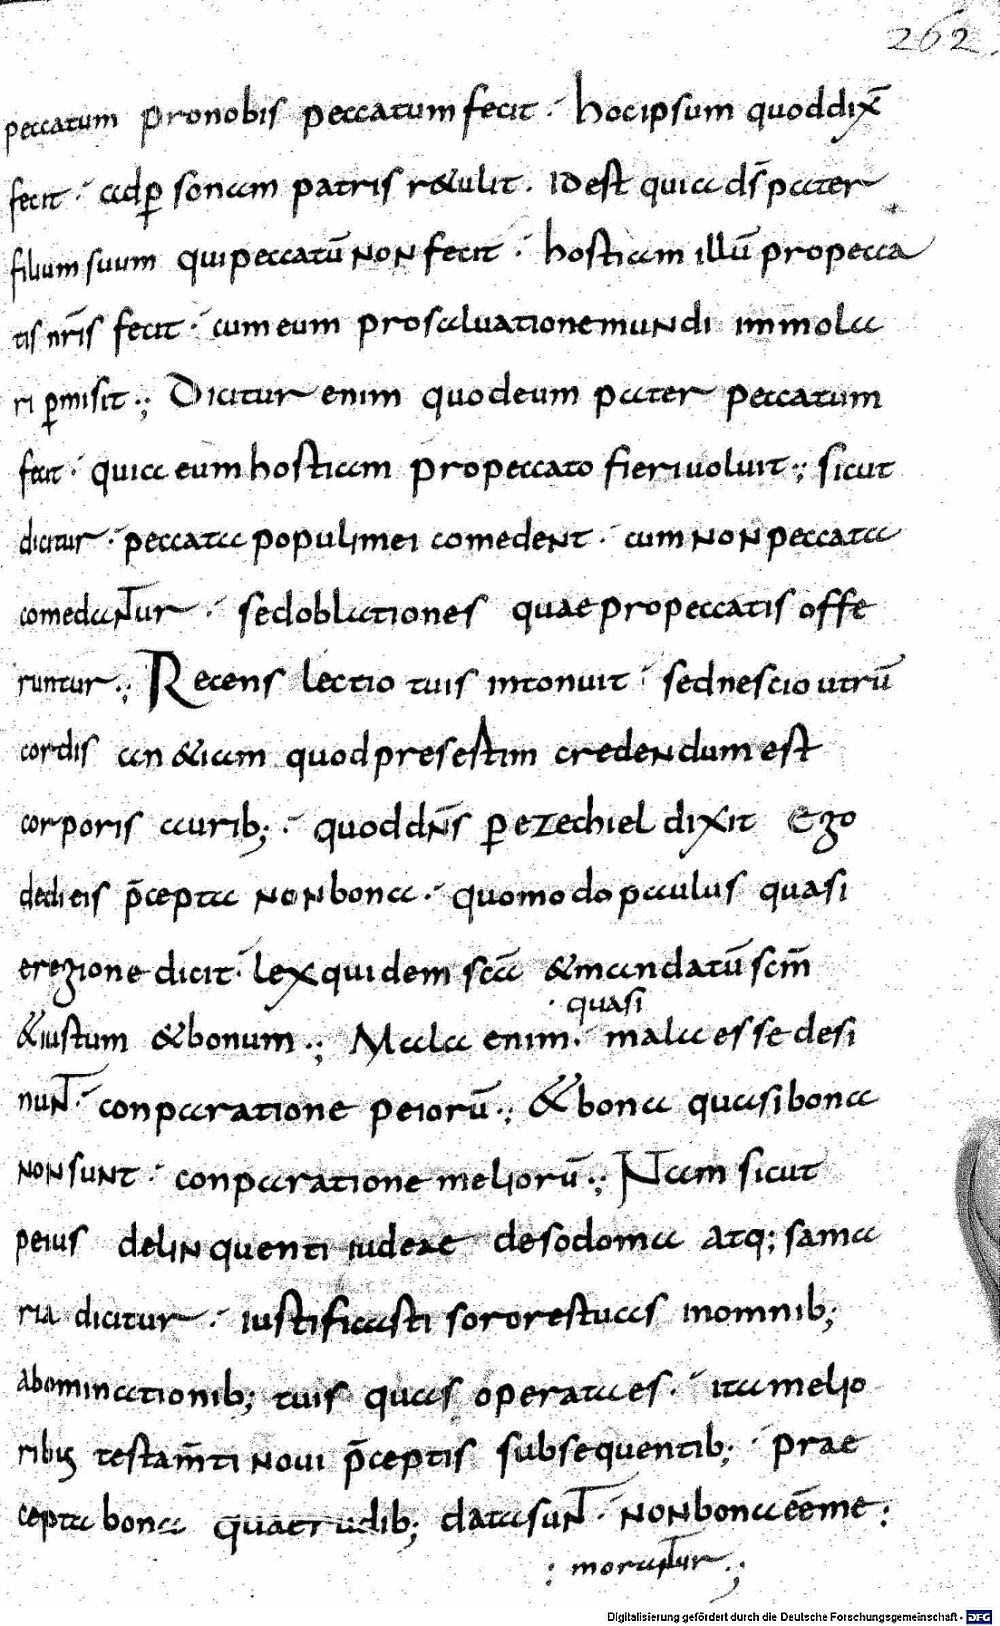 262.
peccatum pronobis peccatum fecit · hocipsum quoddix̄
fecit · adp̱ sonam patris r&ulit · idest quia ds̄ pater
filium suum quipeccatū non fecit · hostiam illū propecca
tis nr̄is fecit · cum eum prosaluatione mundi immola
ri p̱misit ·; Dicitur enim quodeum pater peccatum
fecit · quia eum hostiam propeccato fieri uoluit ·; sicut
dicitur · peccata populi mei comedent · cum non peccata
comedantur · sedoblationes quae propeccatis offe
runtur ·; Recens lectio tuis intonuit · sed nescio utrū
cordis an &iam quod presestim credendum est
corporis aurib; · quod dn̄s p̱ ezechiel dixit Ego
dedi eis p̄cepta non bona · quomodo paulus quasi
eregione dicit · lex quidem scā &mandatū scm̄
&iustum &bonum ·; Mala enim · mala esse desi
quasi
nunt · conparatione peiorū ·; &bona quasi bona
non sunt · conparatione meliorū ·; Nam sicut
peius delinquenti iudeae desodoma atq; sama
ria dicitur · iustificasti sorores tuas inomnib;
abominationib; tuis quas operata es · ita melio
ribus testam̄ti noui p̄ceptis subsequentib; · prae
cepta bona quae rudib; data sunt · non bona eē me :
: morantur ·;
Digitalisierung gefördert durch die Deutsche Forschungsgemeinschaft - DFG